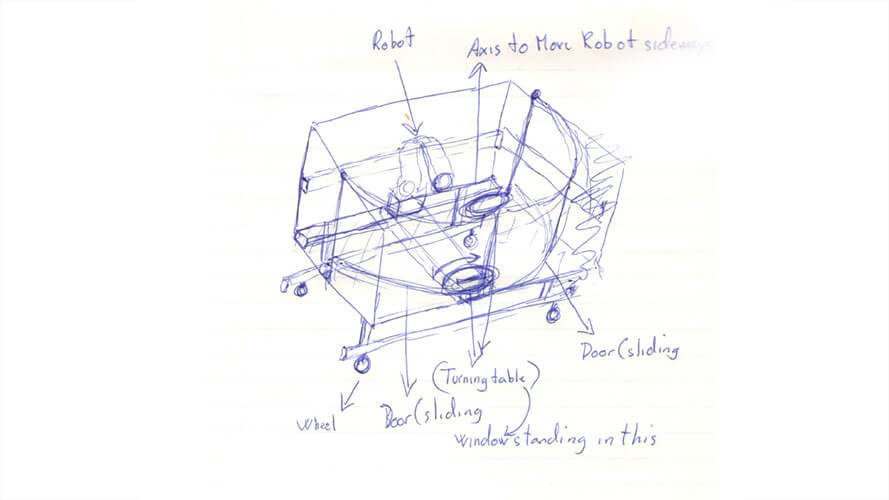 Robot
Axis to Move Robot sideways
Door (sliding
(Turning table)
Wheel
Door (sliding
Window standing in this